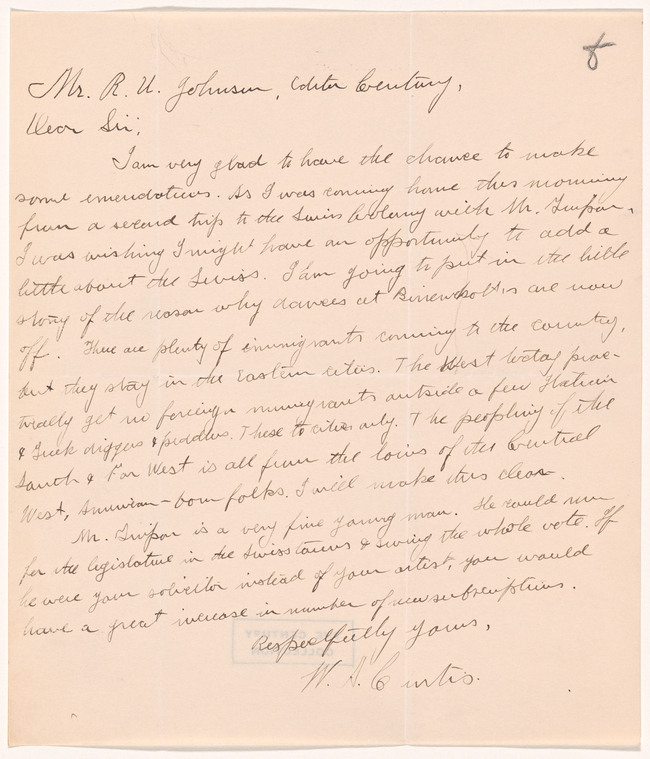 8
Mr. R. U. Johnson, Editor Century,
Dear Sir;
I am very glad to have the chance to make
some emendations. As I was coming home this morning
from a second trip to the Swiss Colony with Mr.
I was wishing I might have an opportunity to add a
little about the Swiss. I am going to put in the little
story of the reason why dances at are now
off. There are plenty of immigrants coming to the country,
but they stay in the Eastern cities. The West today prac-
tically get no foreign immigrants outside a few Italian
& Greek diggers & peddlers. These to cities only. The peopling of the
South & Far West is all from the loins of the Central
West, American-born folks. I will make this clear.
Mr. is a very fine young man. He could run
for the legislature in the Swiss towns & swing the whole vote. If
he were your solicitor instead of your artist, you would
have a great increase in number of new subscriptions.
Respectfully yours,
W. A. Curtis.
THE CENTURY
COLLECTION